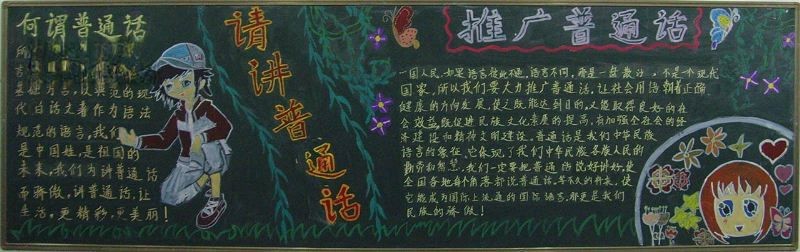 何谓普通话
基础方言,以典范的现
代白话文著作为语法
规范的语言,我们
是中国娃,是祖国的
未来,我们为讲普通话
而骄傲,讲普通话,让
生活,更精彩,更美丽!
请讲普通话
推广普通话
一国人民,如果语言彼此不通,语言不同,而是一盘散沙,不是一个现代
国家,所以我们要大力推广普通话,让社会用语朝着正确
健康的方向发展,使之既能达到目的,又能取得良好的社
会效益,既促进民族文化素质的提高,有加强全社会的经
济建设和精神文明建设,普通话是我们中华民族
语言的象征,它体现了我们中华民族各族人民的
勤劳和智慧,我们一定要把普通话说好讲好,使
全国各地每个角落都说普通话,等不久的将来,使
它能成为国际上流通的国际语言,那更是我们
民族的骄傲!